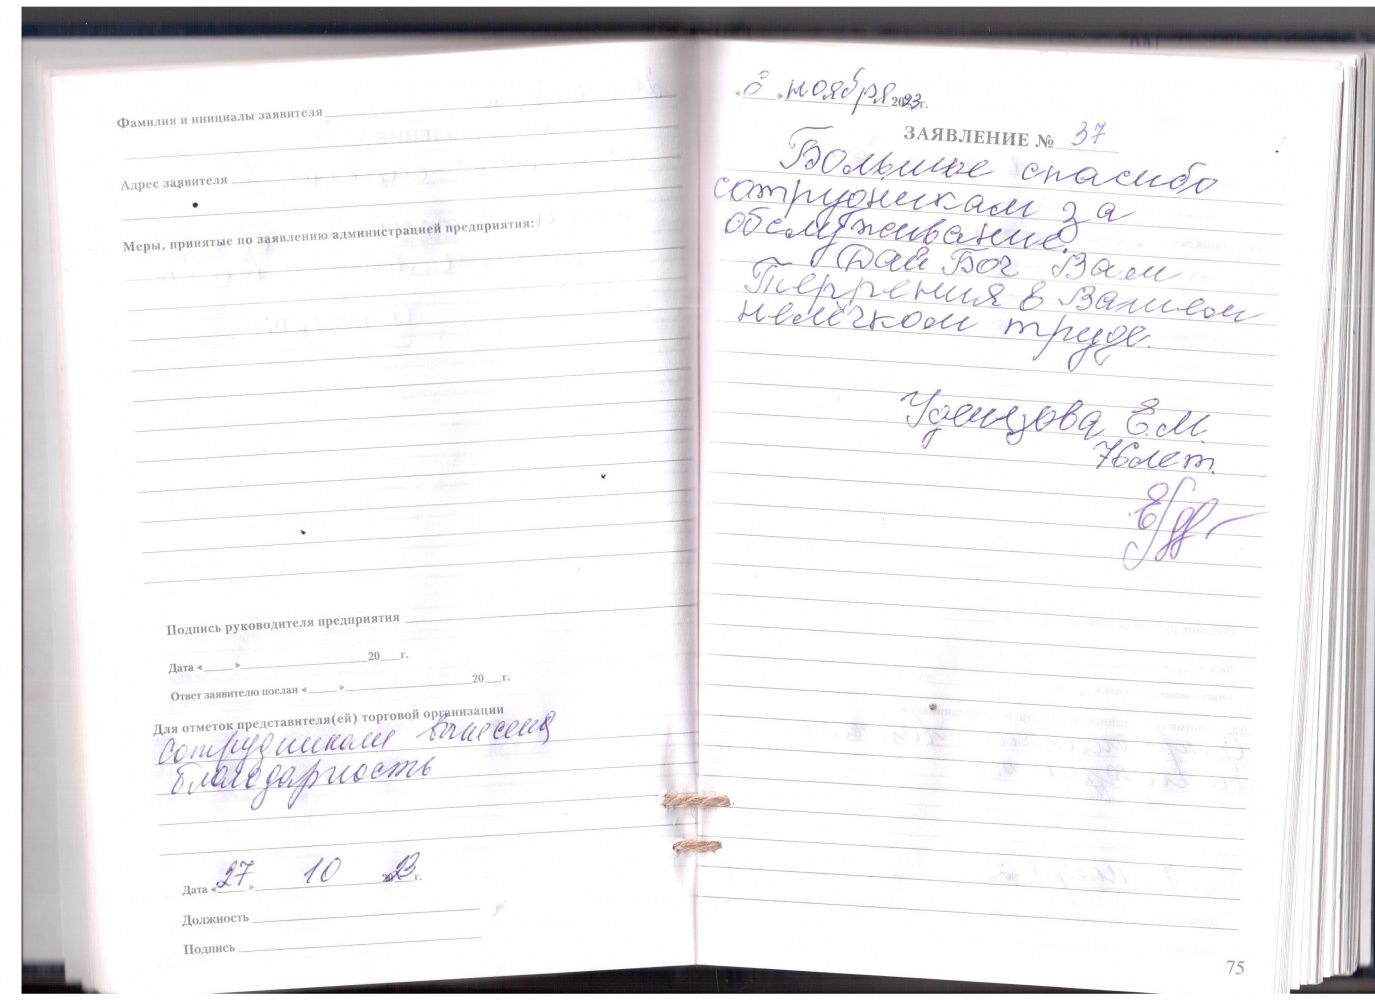 Фамилия и инициалы заявителя
Адрес заявителя
Меры, принятые по заявлению администрацией предприятия:
Подпись руководителя предприятия
Дата «___»___20___г.
Ответ заявителю послан «___»___20___г.
Для отметок представителя(ей) торговой организации
Сотрудникам вынесена
благодарность
Дата «27» 10 2023г.
Должность
Подпись
«8» ноября 2023г.
ЗАЯВЛЕНИЕ № 37
Большое спасибо
сотрудникам за
обслуживание.
Дай Бог Вам
Терпения в Вашем
нелёгком труде.
Уденцова Е.М.
76 лет.
75